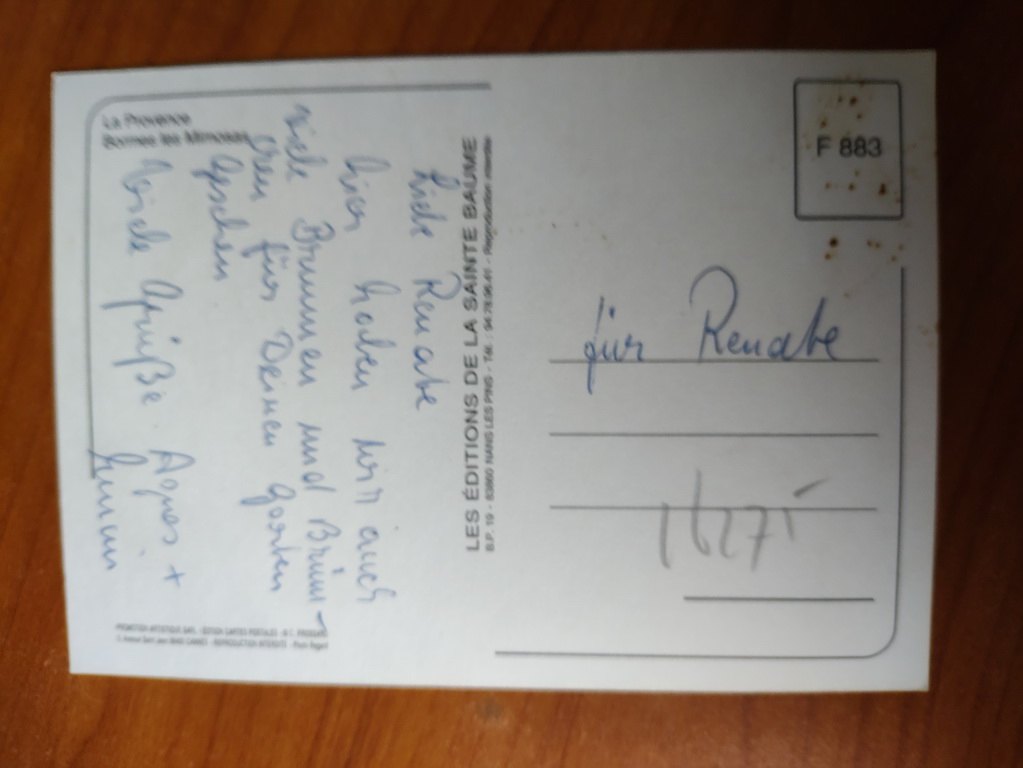 La Provence
Bormes les Mimosas
Liebe Renate
hier haben wir auch
viele Brunnen und Brünn-
chen für Deinen Garten
gesehen
Viele Grüße Agnes +
LES ÉDITIONS DE LA SAINTE BAUME
B.P. 19 - 83860 NANS LES PINS - Tél. : 94.78.96.61 - Reproduction interdite
F 883
für Renate